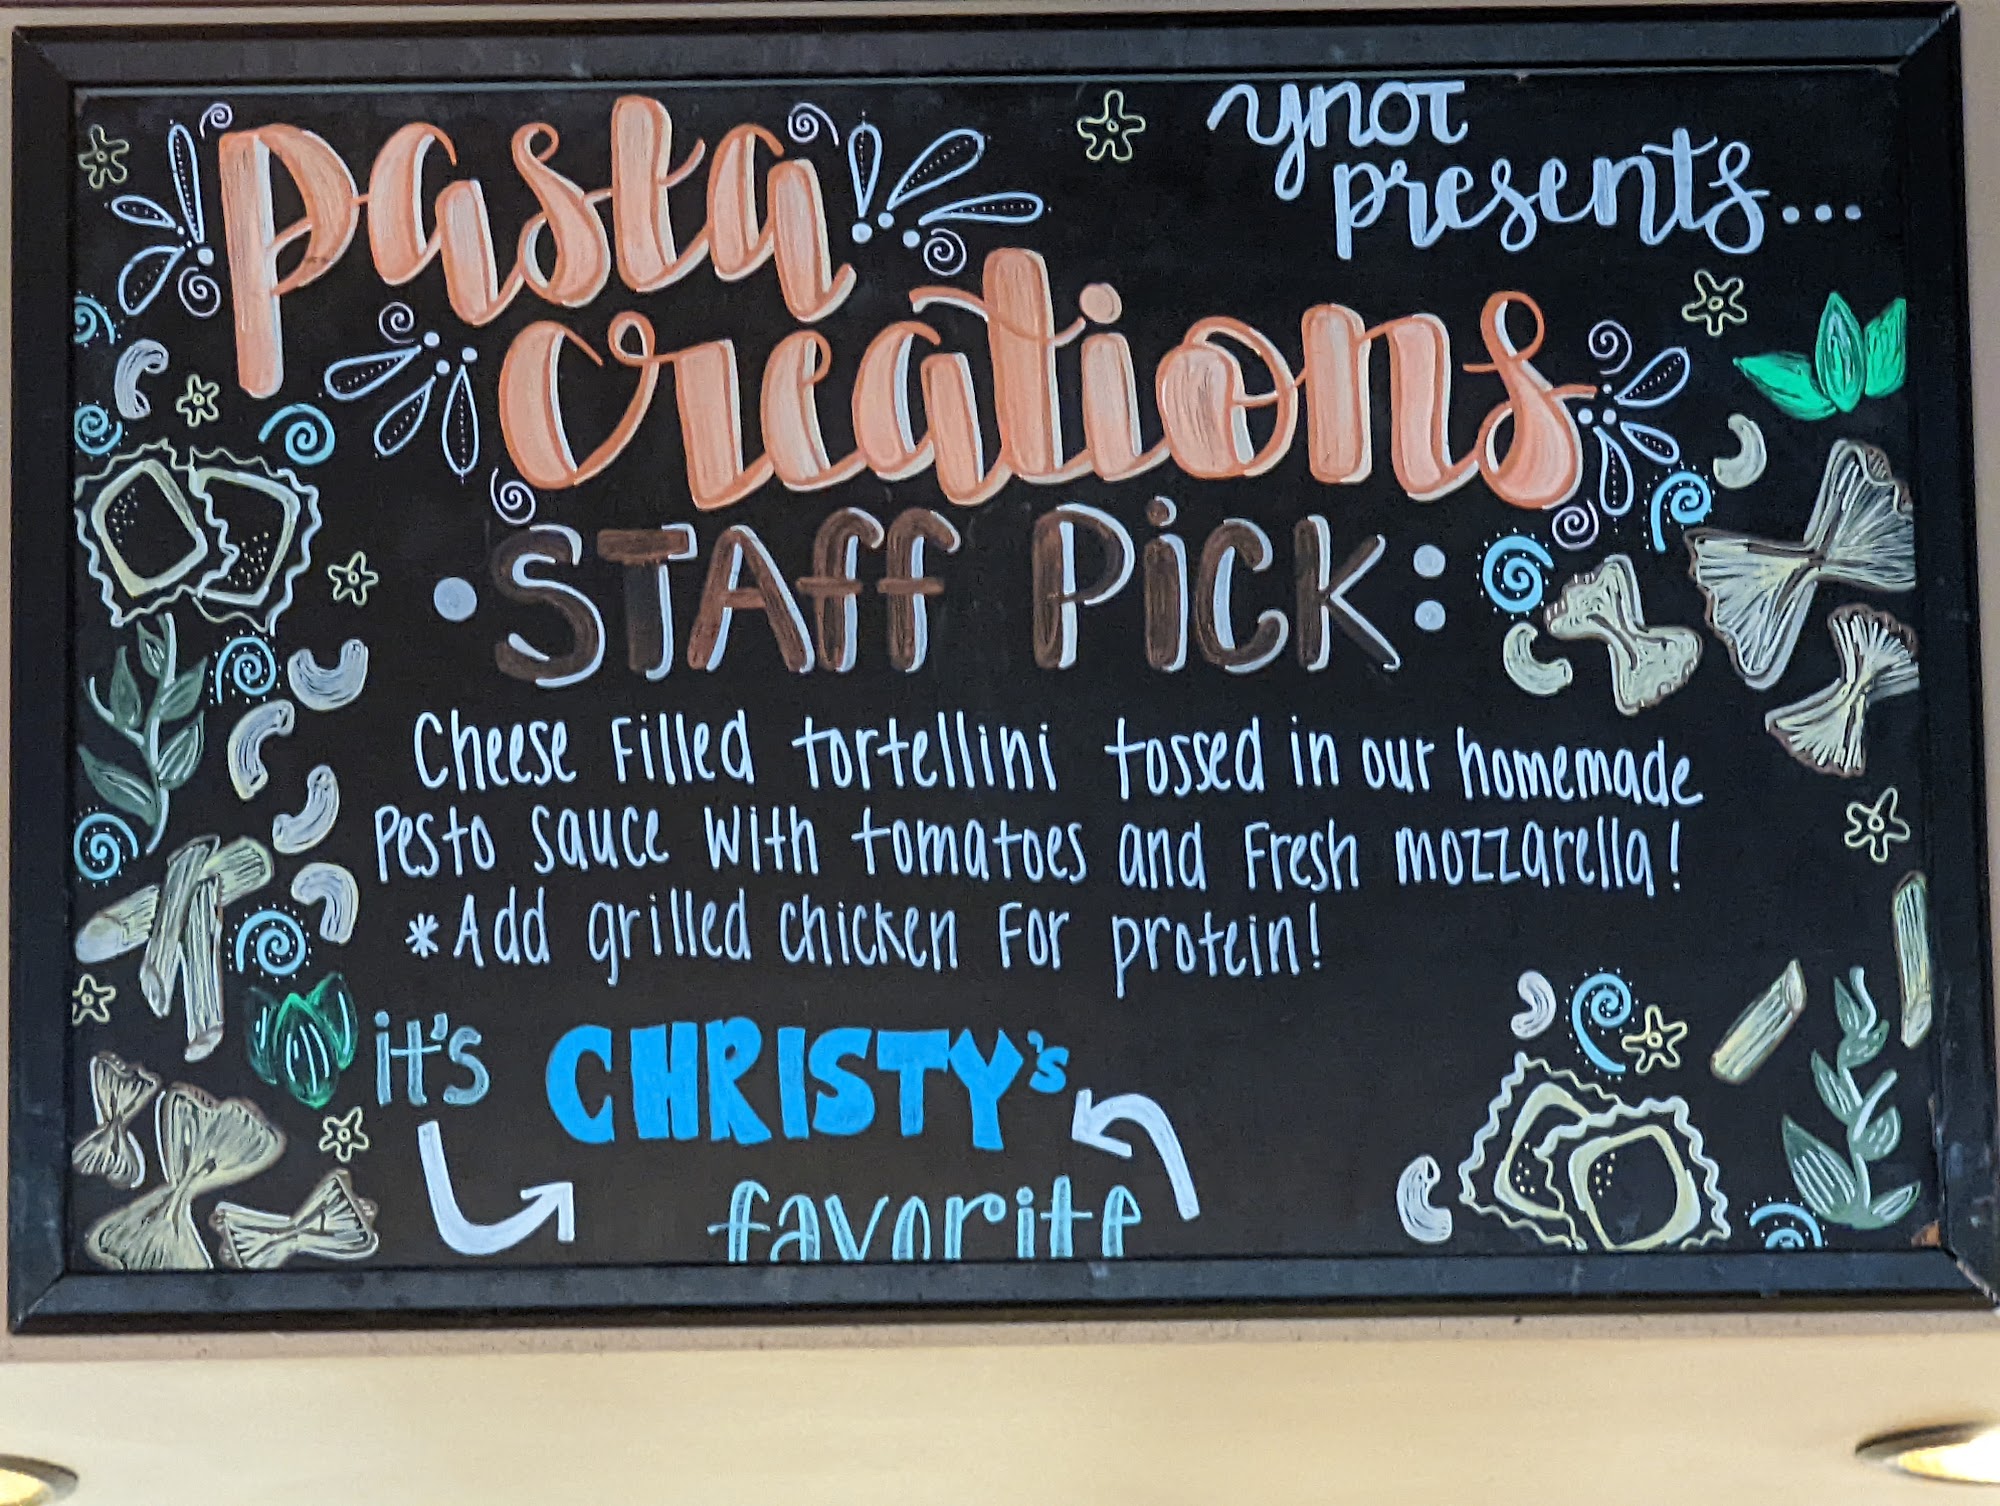 ynot
presents...
pasta
creations
• STAff PiCK:
Cheese Filled tortellini tossed in our homemade
Pesto sauce with tomatoes and Fresh mozzarella!
*Add grilled chicken For protein!
it's CHRISTY's
favorite